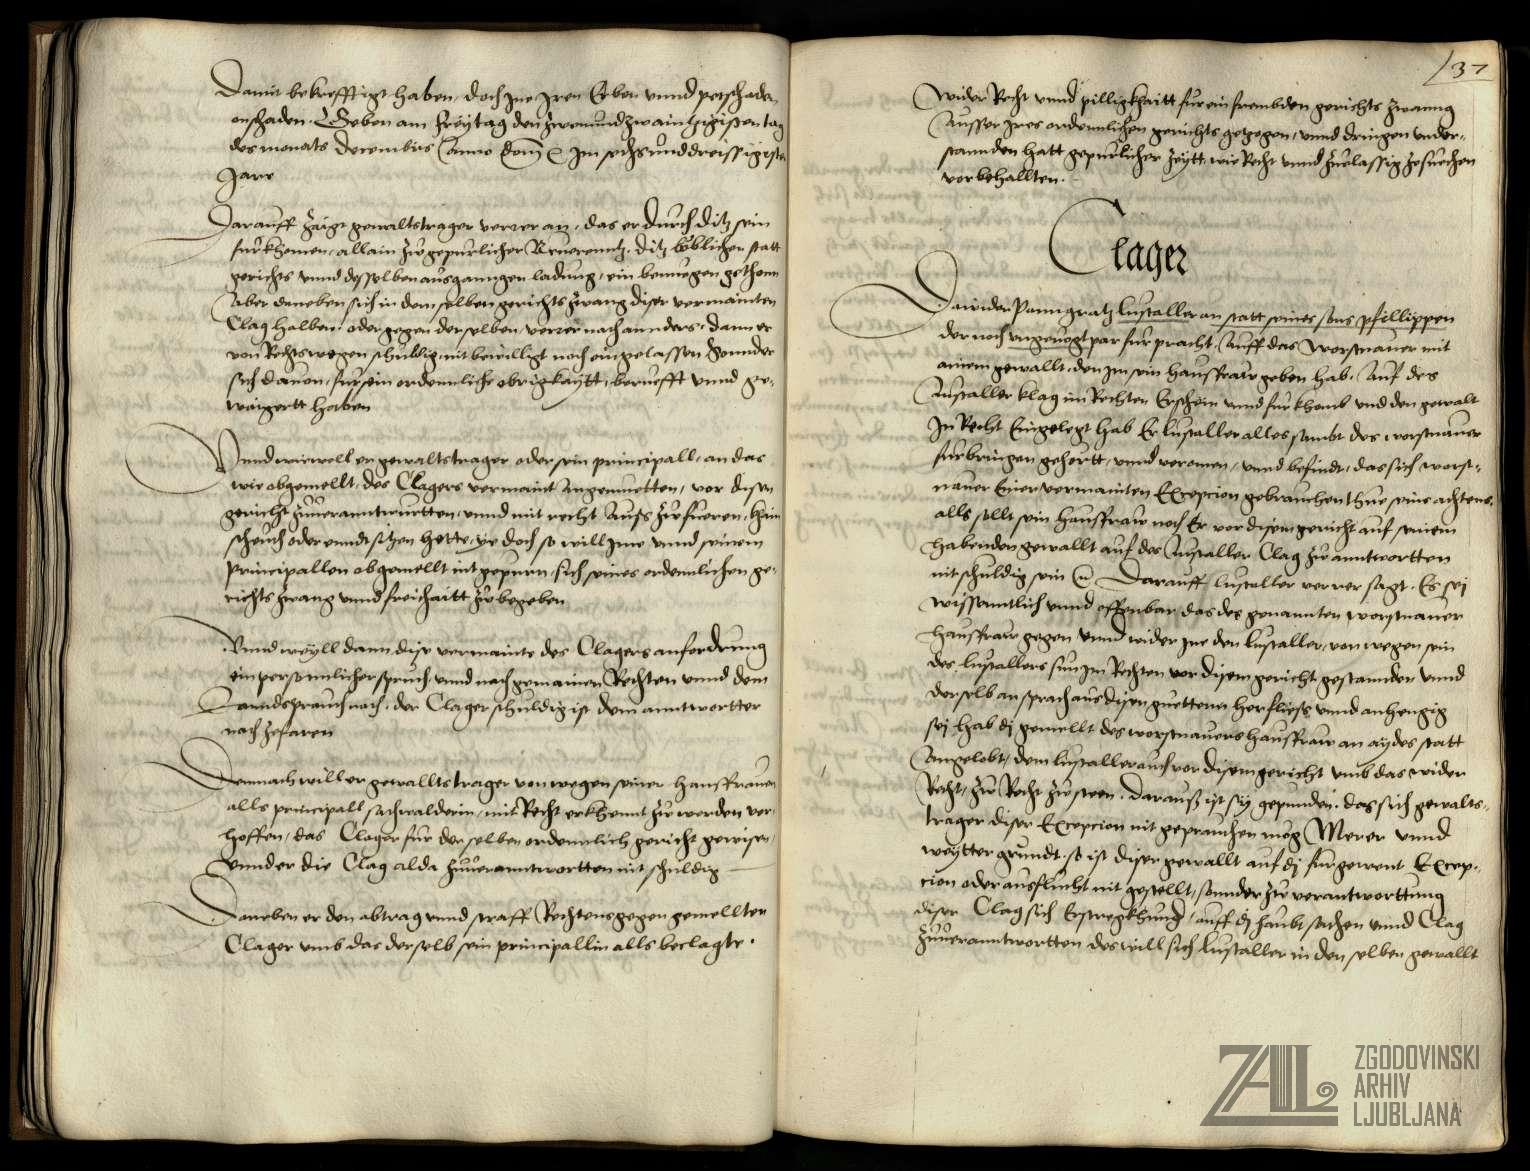 Damit bekrefftigt haben, doch Ime Iren Erben unnd petschaden
onschaden. Geben am freytag den zwenundzwaintzigisten tag
des monats decembris Anno Dom &c Im sechsunddreissigisten
Jare
Darauff zaigt gewaltstrager verrer an, das er durch ditz sein
furkhomen, allain zu gepurlicher Reverenntz, ditz loblichen statt
gerichts unnd desselben ausganngen ladung, ein benuegen gethonn
Aber daneben sich in demselben gerichtszwang diser vermainten
Clag halben, oder gegen derselben, verrer nach annders, dann er
von Rechtswegen schuldig nit bewilligt noch eingelassen sonnder
sich davon, fur sein ordennliche obrigkaytt, beruefft unnd ge-
waigertt haben
Unnd wiewoll er gewaltstrager oder sein principall, an das
wie obgemellt, des Clagers vermaint Anzemuetten, vor disem
gericht zuveranntwurtten, unnd mit recht Auszzufueren, khain
scheuch oder enndtsitzen hette, ye doch so will Ime unnd seinem
principallen obgemellt nit gepurn sich seines ordennlichen ge-
richtszwang unnd freihaitt zu begeben
Unnd weyll dann dise vermainte des Clagers anfordrung
ein personnlicher spruch unnd nach gemainen Rechten unnd dem
Lanndsprauch nach, der Clager schuldig ist dem anntwortter
nach zefaren
Demnach will er gewalltstrager von wegen seiner hausfrauen
alls principall sachwalderin, mit Recht erkhennt zu werden ver-
hoffen, das Clager fur derselben ordennlich gericht gewisen,
unnd er die Clag alda zuveranntwortten nit schuldig
Daneben er den abtrag unnd straff Rechtens gegen gemellten
Clager umb das derselb sein principallin alls beclagte.
137
Wider Recht unnd pilligkhaitt fur ein frembden gerichts zwanng
Ausser Ires ordennlichen gerichts getzogen, unnd dringen under-
stannden hatt gepurlicher zeytt wie Recht unnd zuelassig zesuechen
vorbehallten.
Clager
Dawider Panngratz Lustaller an statt seines sons Phillippen
der noch ungevogtpar furpracht. Auff das Worstnauer mit
ainem gewallt, den Im sein hausfraw geben hab. Auf des
Lustaller klag im Rechten Erschein unnd furkhomb und den gewalt
In Recht Eingelegt hab Er Lustaller alles sambt des worstnauer
furbringen gehortt, unnd vernomen, unnd befindt, das sich worst-
nauer Einer vermainten Excepcion gebrauchen thue seins achtens.
alls sollt sein hausfraw noch Er vor disem gericht auf seinem
habenden gewallt auf des Lustaller Clag zu anntwortten
nit schuldig sein &c Darauff Lustaller verrer sagt. Es sej
wissenntlich unnd offenbar das des genannten worstnauer
hausfraw gegen unnd wider Ine den Lustaller, von wegen sein
des Lustallers sun Im Rechten vor disem gericht gestannden unnd
derselb ansprach aus disen guettern herfliess unnd anhengig
sej hab dj gemellt des worstnauers hausfraw an aydes statt
Angelobt, dem Lustaller auch vor disem gericht umb das wider
Recht, zu Recht zu steen. Daraus ist sy gepunden. das sich gewalts-
trager diser Excepcion nit geprauchen mog Merer unnd
weytter grundt. so ist diser gewallt auf dj furgewent Excep-
cion oder ausflucht nit gestellt, sonnder zu verantworttung
diser Clag sich Erstregkhund, auff dj haubtsachen unnd Clag
zuveranntwortten des will sich Lustaller in denselben gewallt
ZAL ZGODOVINSKI
ARHIV
LJUBLJANA